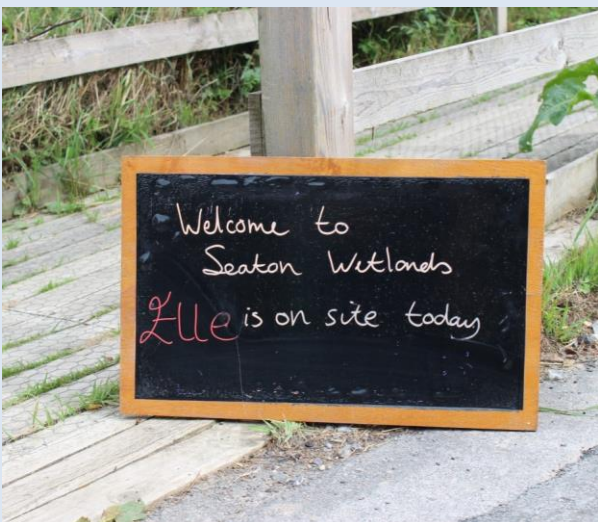 Welcome to
Seaton Wetlands
Elle is on site today